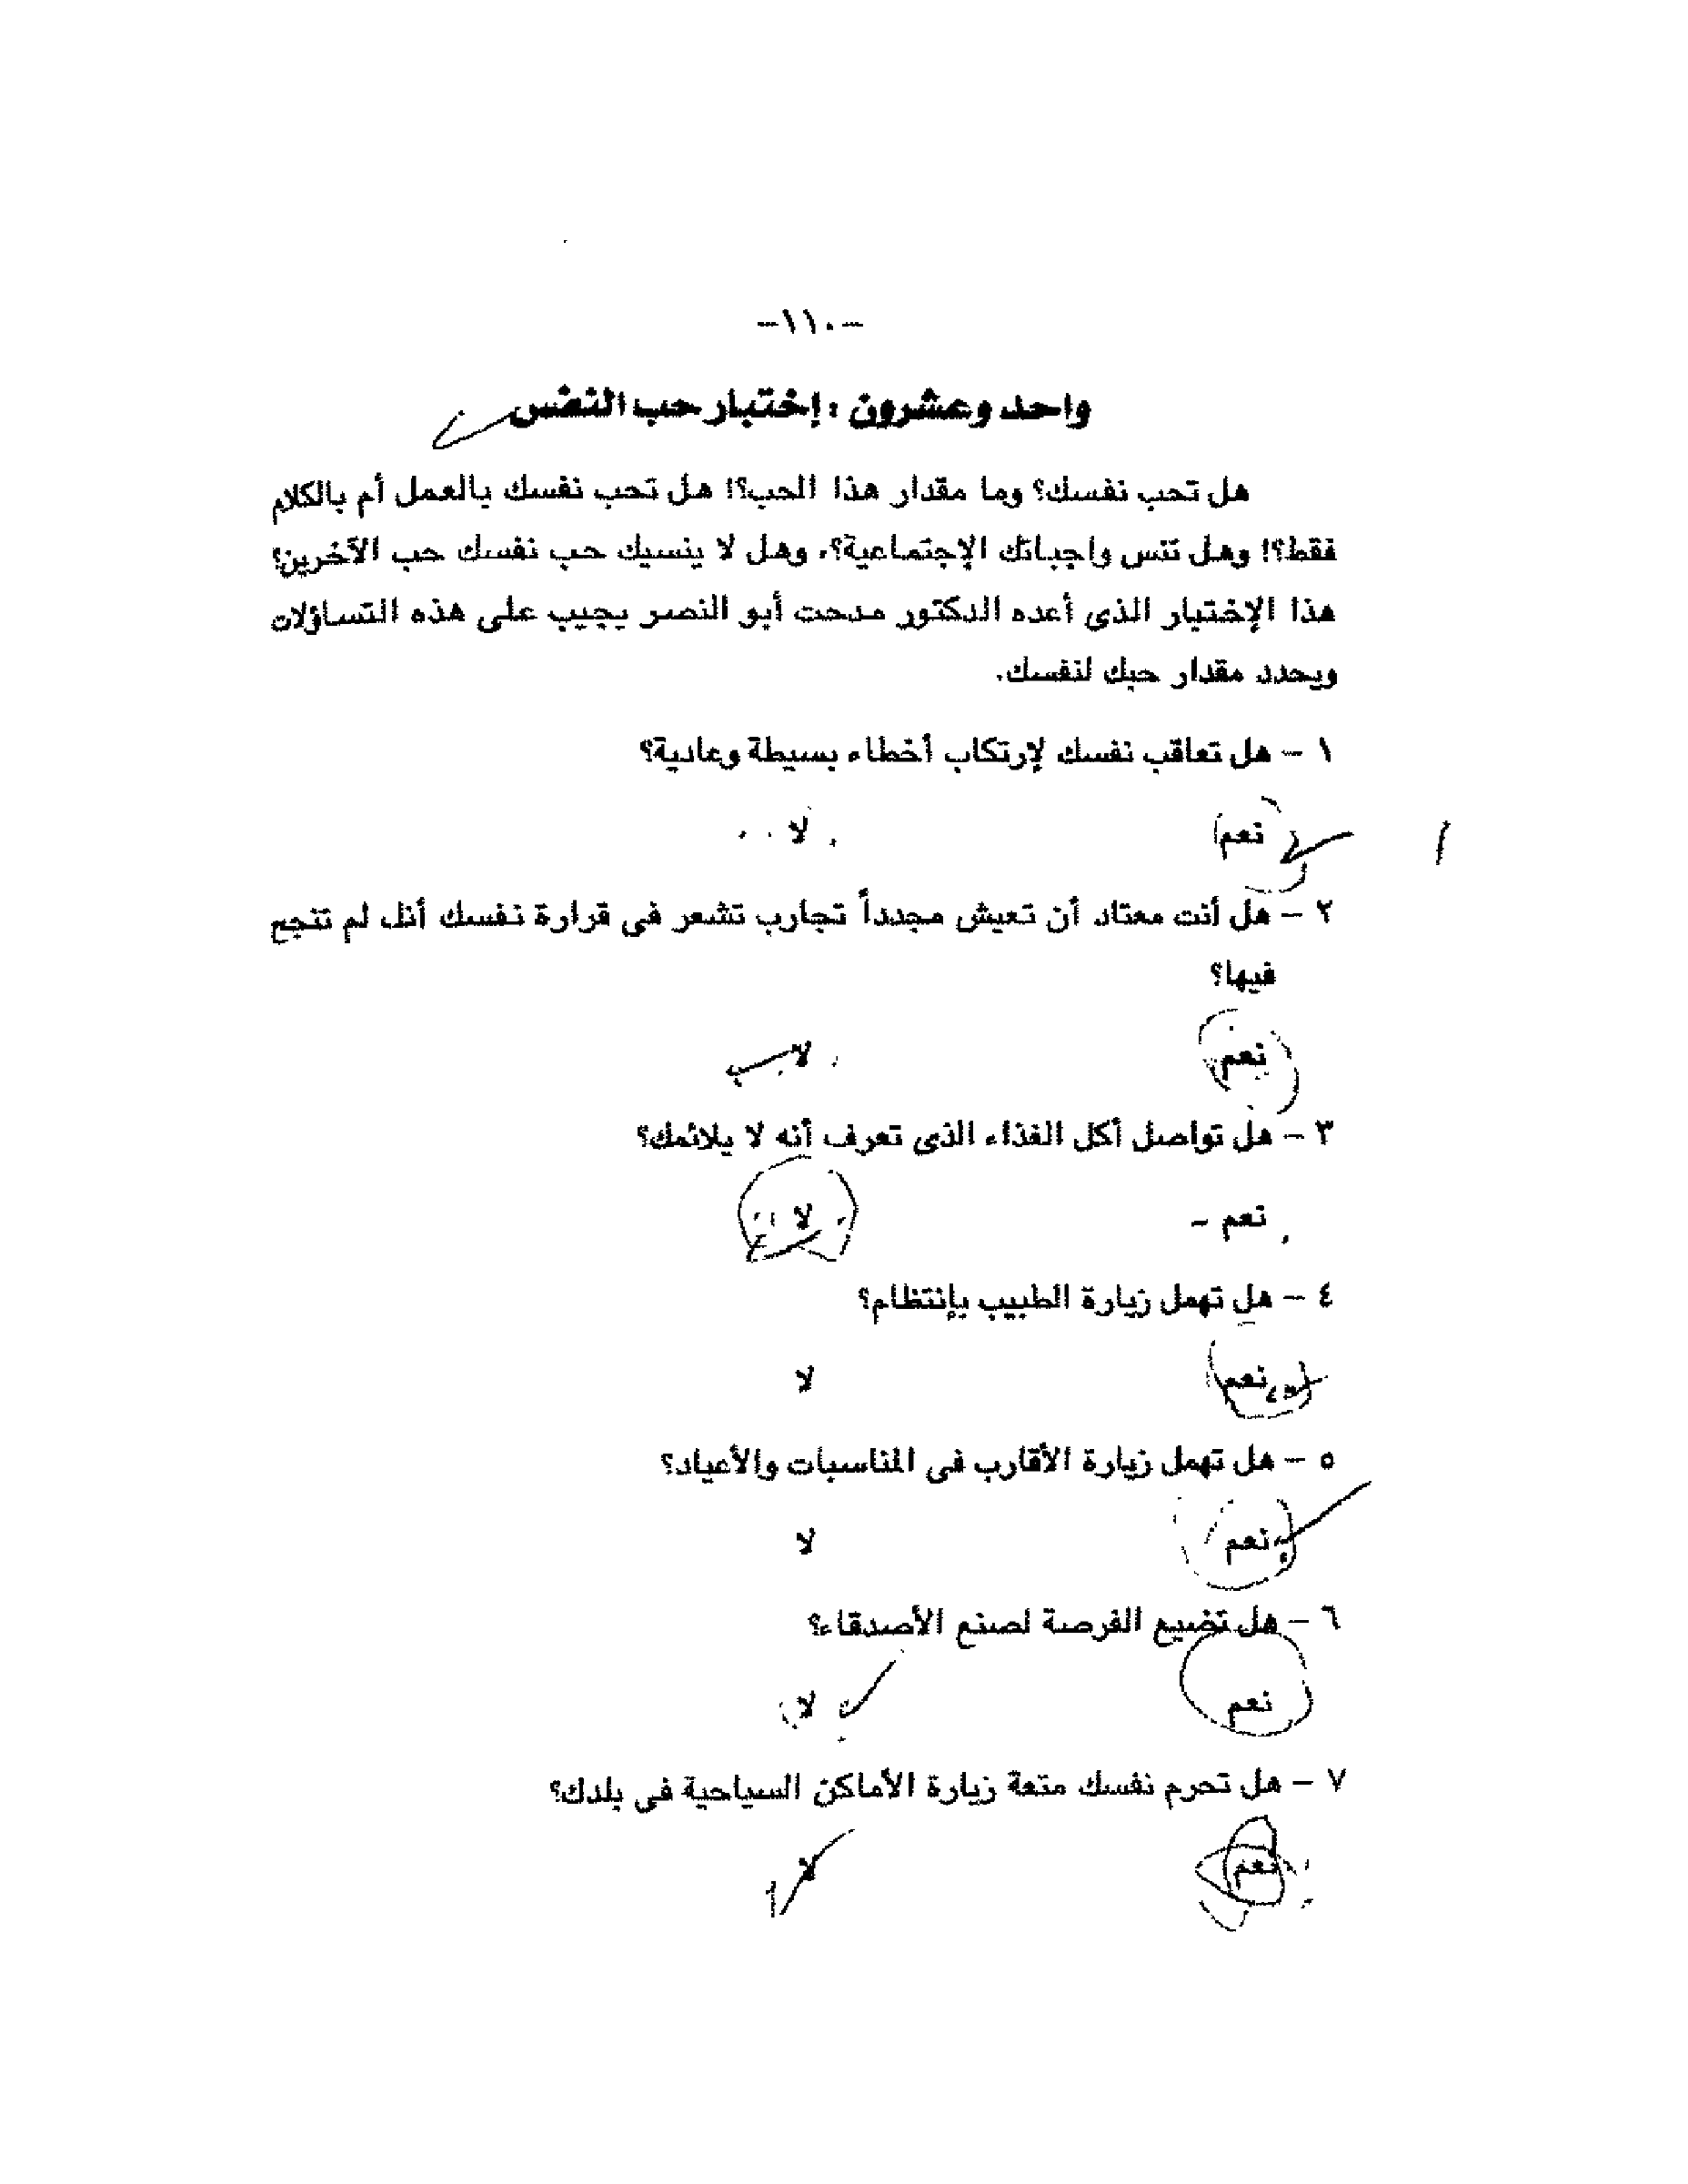 -١١٠-
واحد وعشرون : إختبار حب النفس
هل تحب نفسك؟ وما مقدار هذا الحب؟! هل تحب نفسك بالعمل أم بالكلام
فقط؟! وهل تنس واجباتك الإجتماعية؟، وهل لا ينسيك حب نفسك حب الآخرين؟
هذا الإختبار الذى أعده الدكتور مدحت أبو النصر يجيب على هذه التساؤلات
ويحدد مقدار حبك لنفسك.
١ - هل تعاقب نفسك لإرتكاب أخطاء بسيطة وعادية؟
نعم لا
٢ - هل أنت معتاد أن تعيش مجدداً تجارب تشعر فى قرارة نفسك أنك لم تنجح
فيها؟
نعم لا
٣ - هل تواصل أكل الغذاء الذى تعرف أنه لا يلائمك؟
نعم لا
٤ - هل تهمل زيارة الطبيب بإنتظام؟
نعم لا
٥ - هل تهمل زيارة الأقارب فى المناسبات والأعياد؟
نعم لا
٦ - هل تضيع الفرصة لصنع الأصدقاء؟
نعم لا
٧ - هل تحرم نفسك متعة زيارة الأماكن السياحية فى بلدك؟
نعم لا